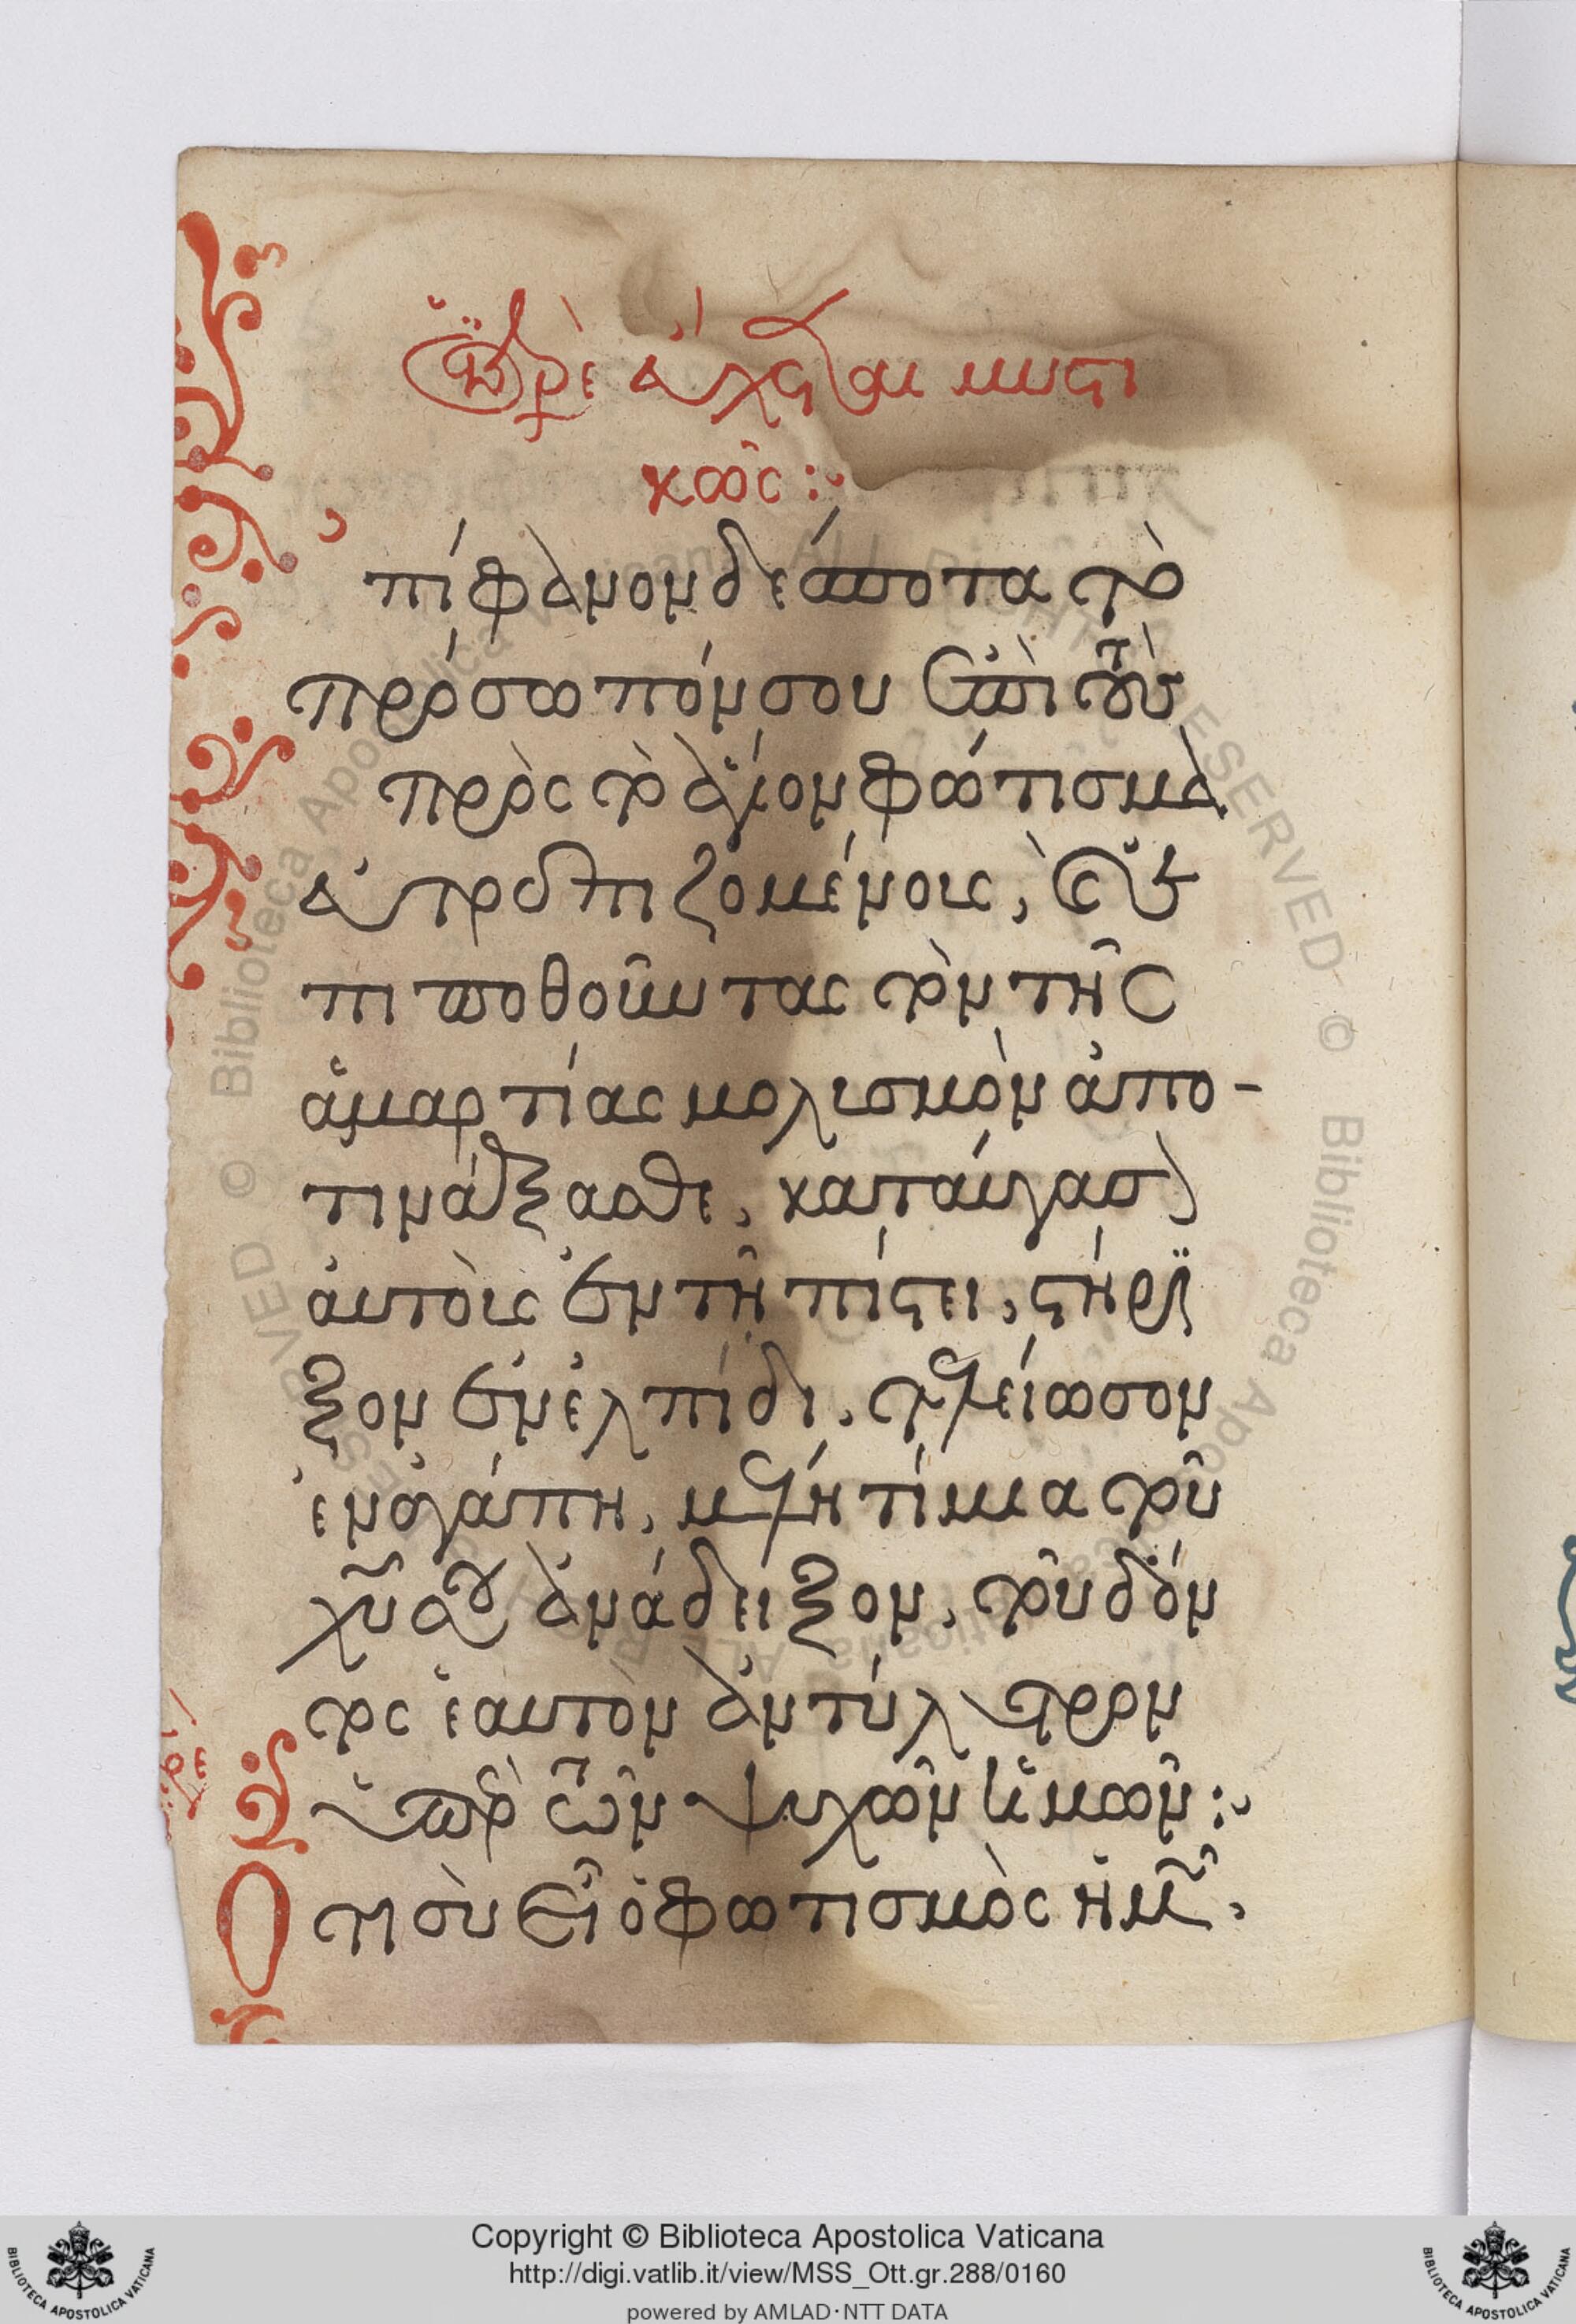 Ὁ ἱερεὺς εὔχεται μυστι
κῶς :·
πίφανον δέσποτα τὸ
πρόσωπόν σου ἐπὶ τοὺς
πρὸς τὸ ἅγιον φώτισμα
εὐτρεπιζομένους, καὶ ἐ
πιποθοῦντας τὸν τῆς
ἁμαρτίας μολισμὸν ἀπο-
τινάξασθε, καταύγασον
αὐτοὺς ἐν τῆ πίστει, στήρι
ξον ἐν ἐλπίδι, τελείωσον
ἐν ἀγάπη, μέλη τίμια τοῦ
χυ σου ἀνάδειξον, τοῦ δόν
τος ἑαυτὸν ἀντίλυτρον
ὑπὲρ τῶν ψυχῶν ἡμῶν :·
τι σὺ εἶ ὁ φωτισμὸς ἡμῶν,
Copyright © Biblioteca Apostolica Vaticana
http://digi.vatlib.it/view/MSS_Ott.gr.288/0160
powered by AMLAD·NTT DATA